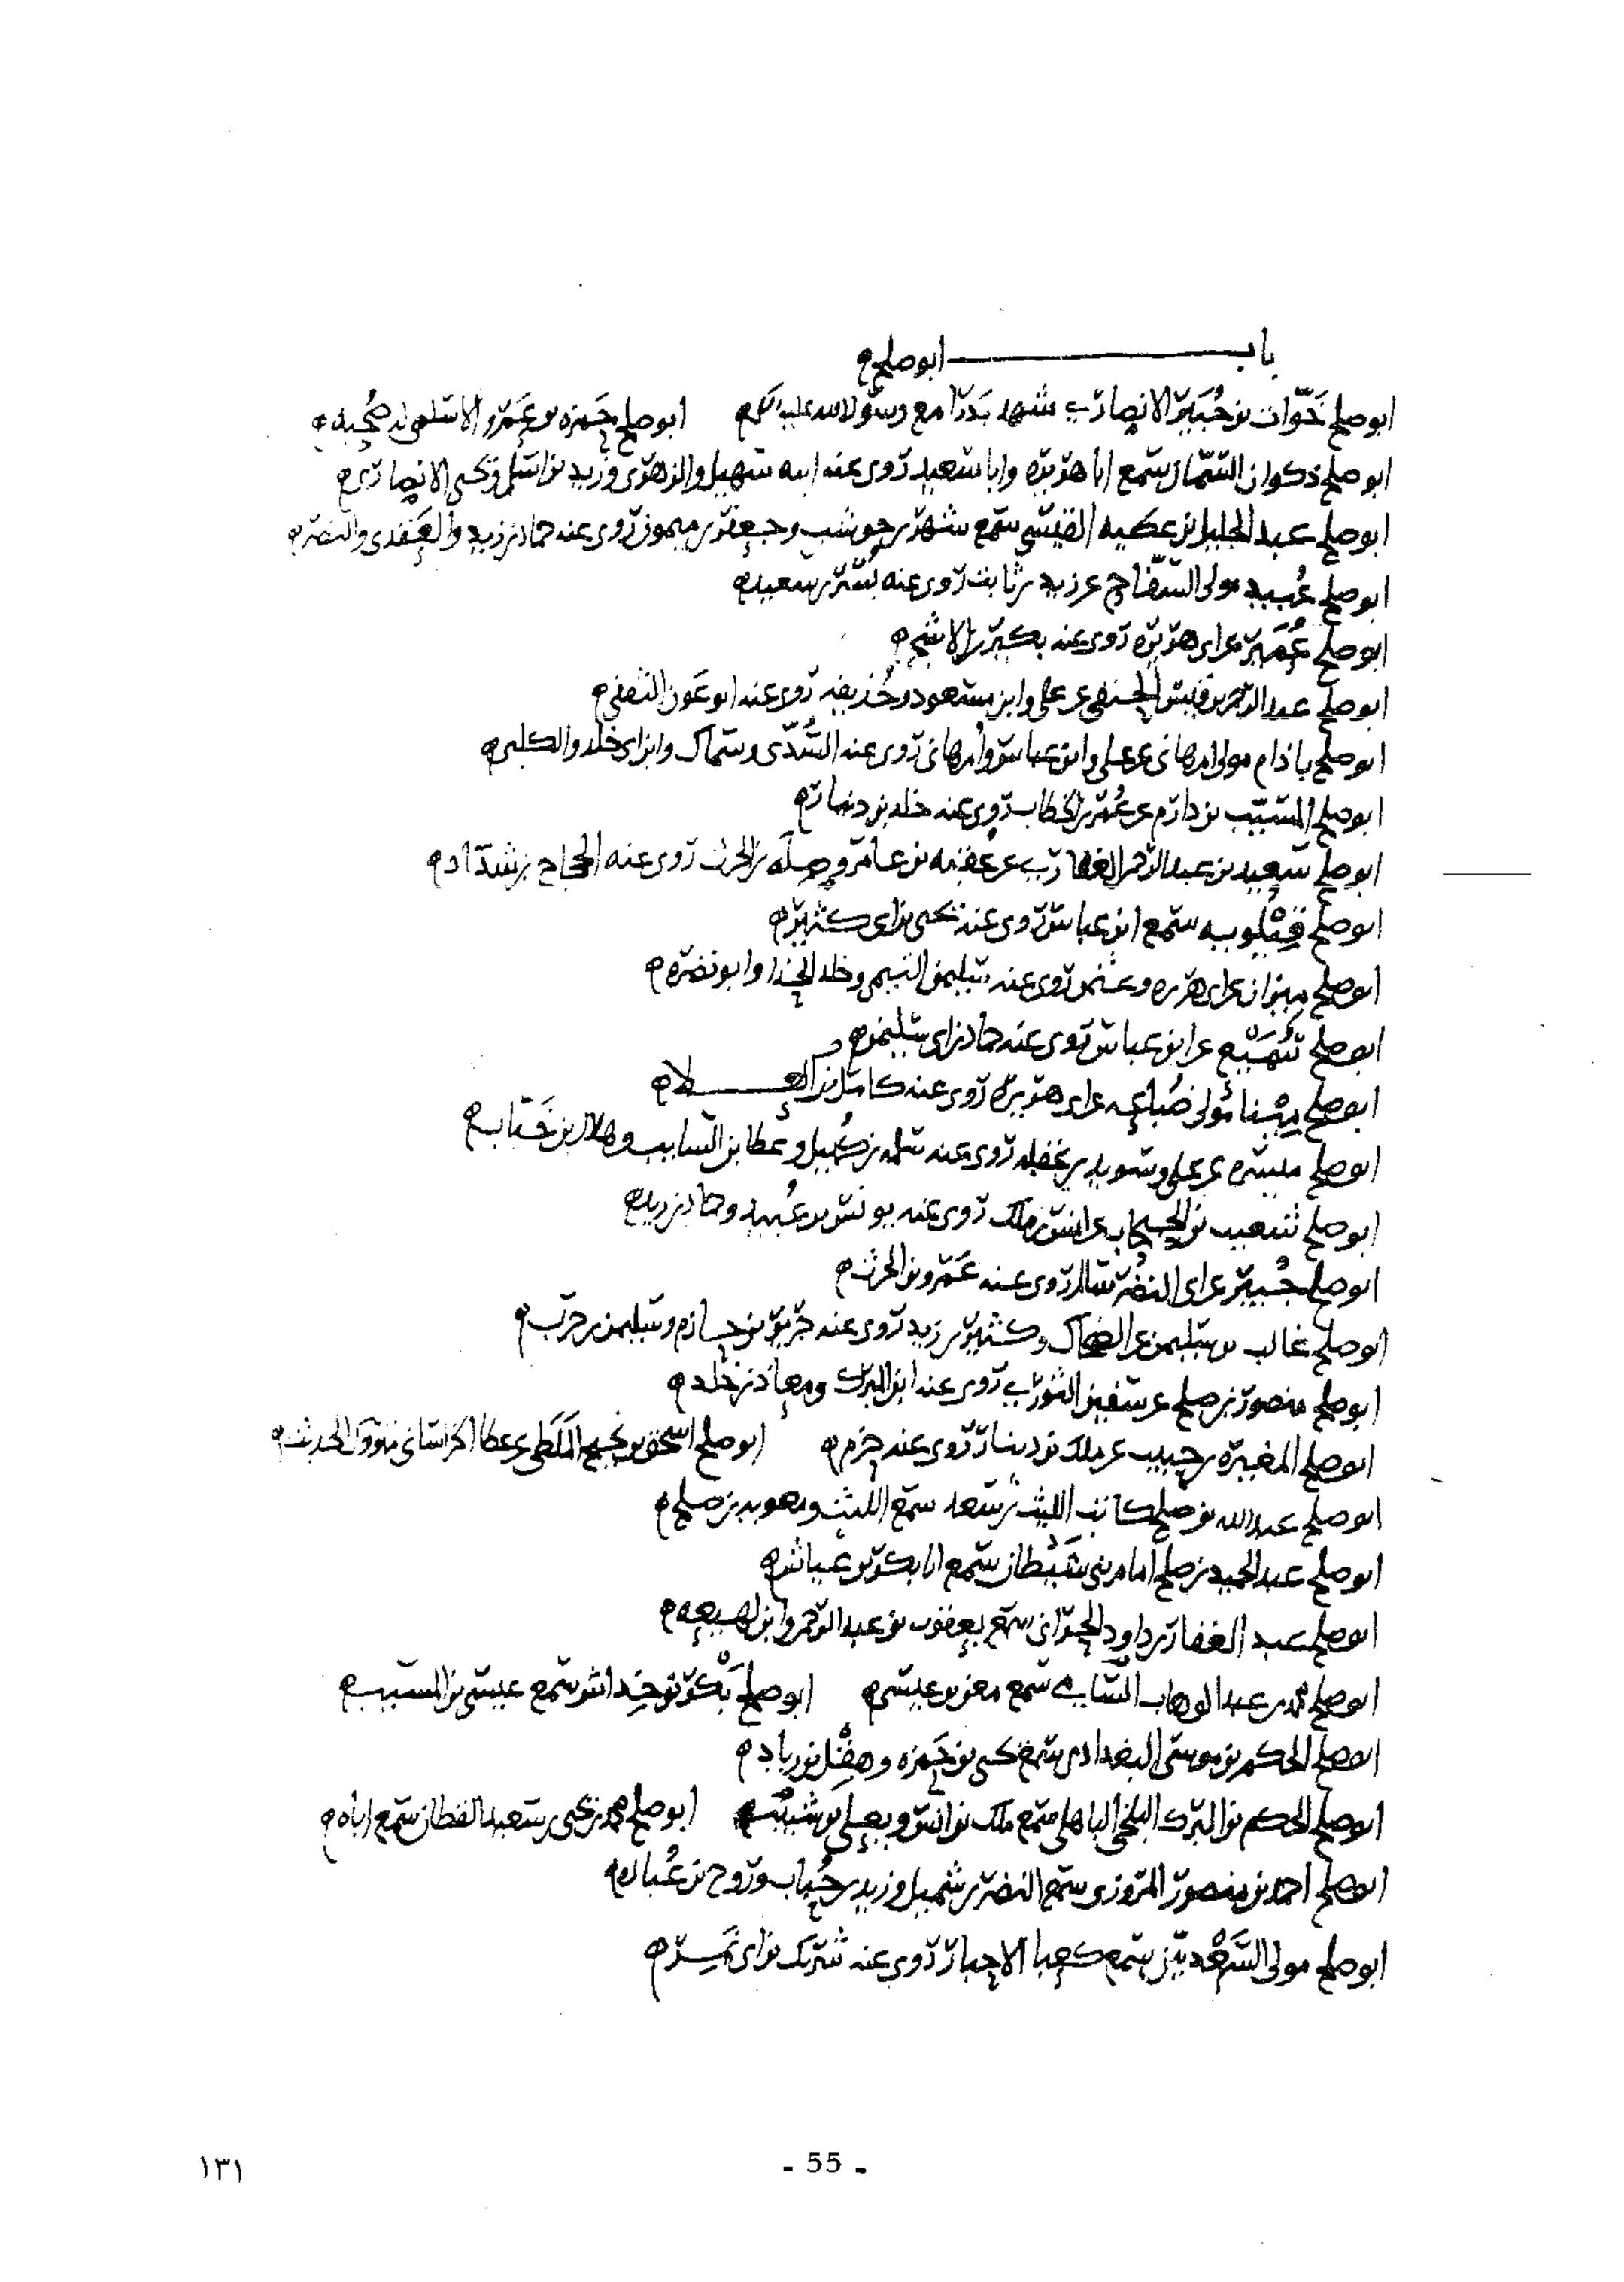 باب ابو صلح
ابو صلح خوات بن جبير الانصاري شهد بدرا مع رسول الله عليه السلم ابو صلح حمزه بن عمرو الاسلمي له صحبه
ابو صلح ذكوان السمان سمع ابا هريره وابا سعيد روى عنه ابنه سهيل والزهري وزيد بن اسلم ويحيى الانصاري
ابو صلح عبد الجليل بن عطيه القيسي سمع شهر بن حوشب وجعفر بن ميمون روى عنه حماد بن زيد والعقدي والنضر
ابو صلح عبيد مولى السفاح عن زيد بن ثابت روى عنه بسر بن سعيد
ابو صلح عمير عن ابي هريره روى عنه بكير بن الاشج
ابو صلح عبد الرحمن بن قيس الحنفي عن علي وابن مسعود وحذيفه روى عنه ابو عون الثقفي
ابو صلح باذام مولى ام هانى عن علي وابن عباس وام هانى روى عنه السدى وسماك وابن ابي خلد والكلبي
ابو صلح المسيب بن دارم عن عمر بن الخطاب روى عنه خلد بن دينار
ابو صلح سعيد بن عبد الرحمن الغفاري عن عقبه بن عامر وصله بن الحرث روى عنه الحجاج بن شداد
ابو صلح قيلويه سمع ابن عباس روى عنه يحيى بن ابي كثير
ابو صلح ميزان عن ابي هريره وعثمن روى عنه سليمن التيمي وخلد الحذا وابو نضره
ابو صلح عن ابن عباس روى عنه حماد بن ابي سليمن
ابو صلح مينا مولى ضباعه عن ابي هريره روى عنه كامل بن العلا
ابو صلح ميسره عن علي وسويد بن غفله روى عنه سلمه بن كهيل وعطا بن السايب وهلال بن خباب
ابو صلح شعيب بن الحبحاب عن انس بن ملك روى عنه يونس بن عبيد وحماد بن زيد
ابو صلح جبير عن ابي النضر سالم روى عنه عمرو بن الحرث
ابو صلح غالب بن سليمن عن الضحاك وكثير بن زيد روى عنه جرير بن حازم وسليمن بن حرب
ابو صلح منصور بن صلح عن سفين الثوري روى عنه ابن المبرك ومعاذ بن خلد
ابو صلح المغيره بن حبيب عن ملك بن دينار روى عنه حزم ابو صلح اسحق بن نجيح الملطي عن عطا الخراساني متروك الحديث
ابو صلح عبد الله بن صلح كاتب الليث بن سعد سمع الليث ومعويه بن صلح
ابو صلح عبد الحميد بن صلح امام بني شيطان سمع ابا بكر بن عياش
ابو صلح عبد الغفار بن داود الحراني سمع يعقوب بن عبد الرحمن وابن لهيعه
ابو صلح محمد بن عبد الوهاب سمع معن بن عيسى ابو صلح بكر بن خداش سمع عيسى بن المسيب
ابو صلح الحكم بن موسى البغدادي سمع يحيى بن حمزه وهقل بن زياد
ابو صلح الحكم بن المبرك البلخي الباهلي سمع ملك بن انس ويعلى بن شبيب ابو صلح محمد بن يحيى بن سعيد القطان سمع اباه
ابو صلح احمد بن منصور المروزي سمع النضر بن شميل وزيد بن حباب وروح بن عباده
ابو صلح مولى السعديين سمع كعبا الاحبار روى عنه شريك بن ابي نمر
١٣١
- 55 -